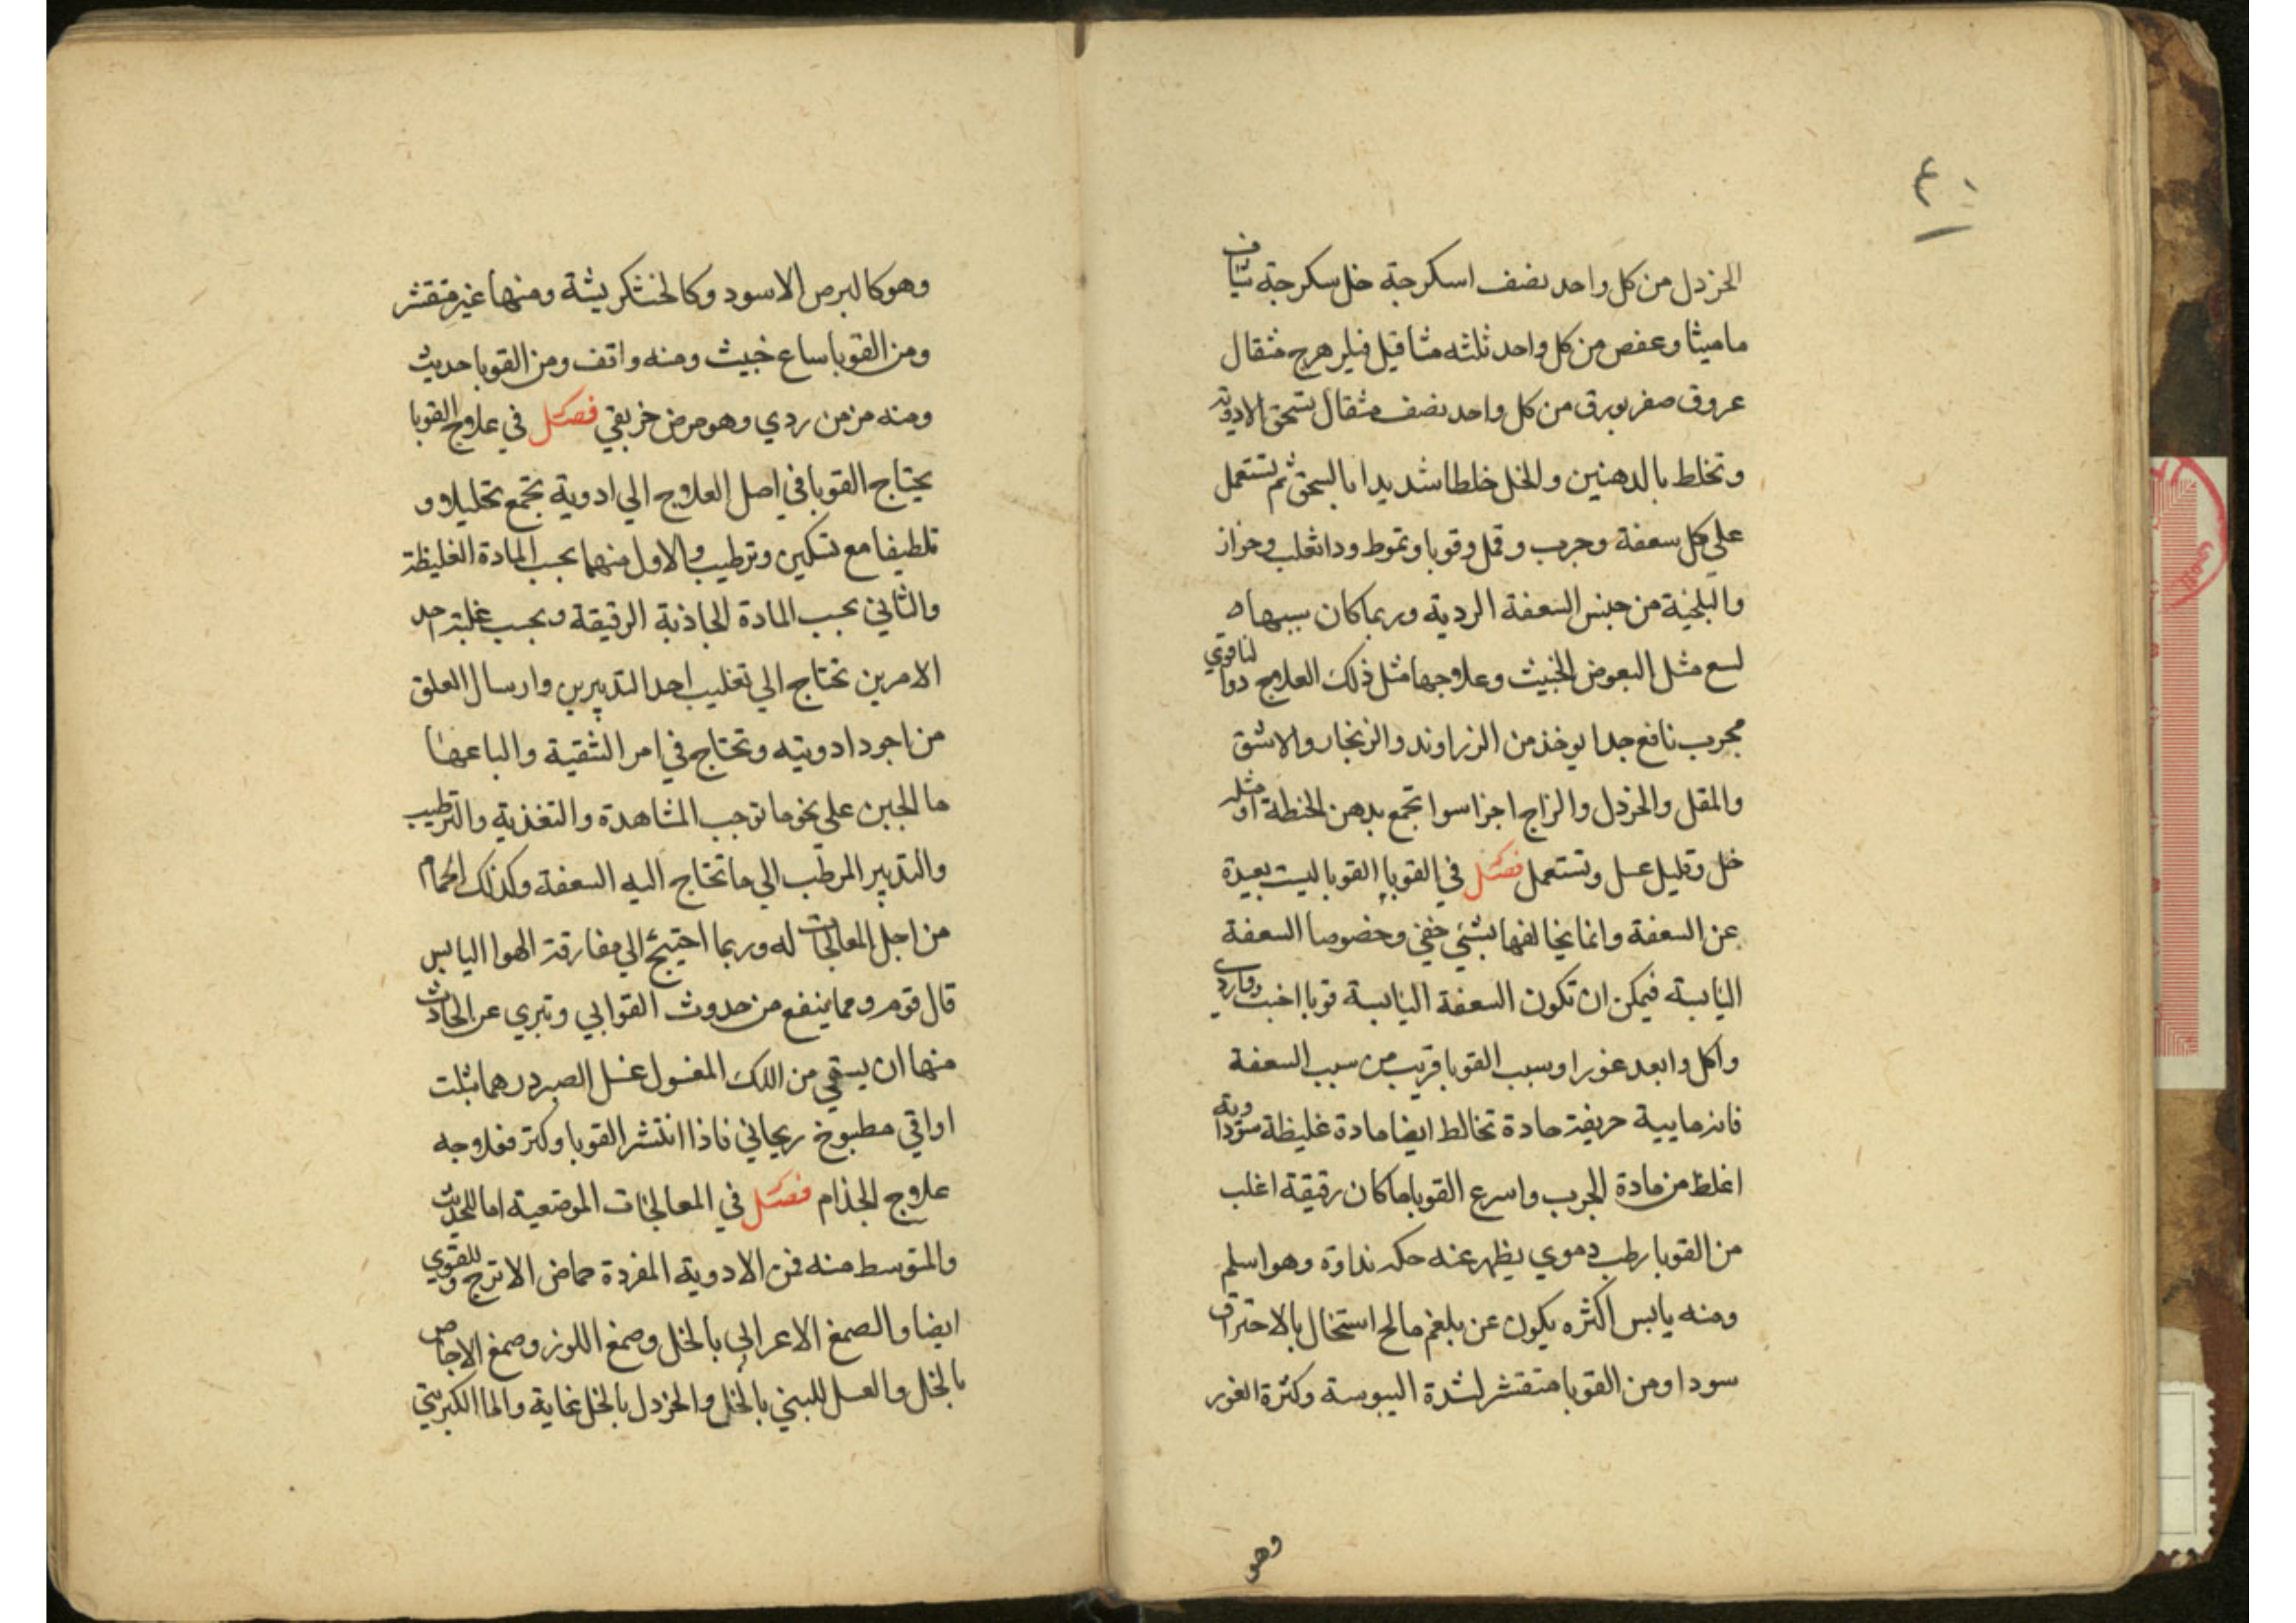 ٤٠
الخردل من كل واحد نصف اسكرجة خل سكرجة شياف
ماميثا وعفص من كل واحد ثلثه مثاقيل فيلرهرج مثقال
عروق صفر بورق من كل واحد نصف مثقال تسحق الادوية
وتخلط بالدهنين والخل خلطا شديدا بالسحق ثم تستعمل
علي كل سعفة وجرب وقمل وقوبا وتموط وداثعلب وحزاز
والبلخية من جنس السعفة الردية وربما كان سببها
لسع مثل البعوض الخبيث وعلاجها مثل ذلك العلاج دوا لنا قوي
مجرب نافع جدا يوخذ من الزراوند والزنجار والاشق
والمقل والخردل والزاج اجزا سوا تجمع بدهن الحنطة او مثله
خل وقليل عسل وتستعمل فصل في القوبا القوبا ليست بعيدة
عن السعفة وانما يخالفها بشئي خفي وخصوصا السعفة
اليابسة فيمكن ان تكون السعفة اليابسة قوبا اخبث
واكل وابعد غورا وسبب القوبا قريب من سبب السعفة
فانه مايية حريفة حادة تخالط ايضا مادة غليظة سوداوية
اغلظ من مادة الجرب واسرع القوبا ما كان رقيقة اغلب
من القوبا رطب دموي يظهر عنه حكه نداوة وهو اسلم
ومنه يابس اكثره يكون عن بلغم مالح استحال بالاحتراق
سودا ومن القوبا متقشر لشدة اليبوسة وكثرة الغور
وهو
وهو كالبرص الاسود وكالخشكريشة ومنها غير متقشر
ومن القوبا ساع خبيث ومنه واقف ومن القوبا حديث
ومنه مزمن ردي وهو مرض خريفي فصل في علاج القوبا
يحتاج القوبا في اصل العلاج الي ادوية تجمع تحليلا و
تلطيفا مع تسكين وترطيب والاول منهما بحسب المادة الغليظة
والثاني بحسب المادة الجاذبة الرقيقة وبحسب غلبة احد
الامرين تحتاج الي تغليب احد التدبيرين وارسال العلق
من اجود ادويته وتحتاج في امر التنقية والباعها
ما الجبن علي نحو ما توجب المشاهدة والتغذية والترطيب
والتدبير المرطب الي ما تحتاج اليه السعفة وكذلك الحمام
من اجل المعالجات له وربما احتيج الي مفارقة الهوا اليابس
قال قوم ومما ينفع من حدوث القوابي وتبري عن الحادث
منها ان يسقي من اللك المغسول غسل الصبر درهما بثلث
اواقي مطبوخ ريحاني فاذا انتشر القوبا وكثر فعلاجه
علاج الجذام فصل في المعالجات الموضعية اما للحديث
والمتوسط منه فمن الادوية المفردة حماض الاترج وللقوي
ايضا والصمغ الاعرابي بالخل وصمغ اللوز وصمغ الاجاص
بالخل والعسل اللبني بالخل والخردل بالخل غاية والما الكبريتي